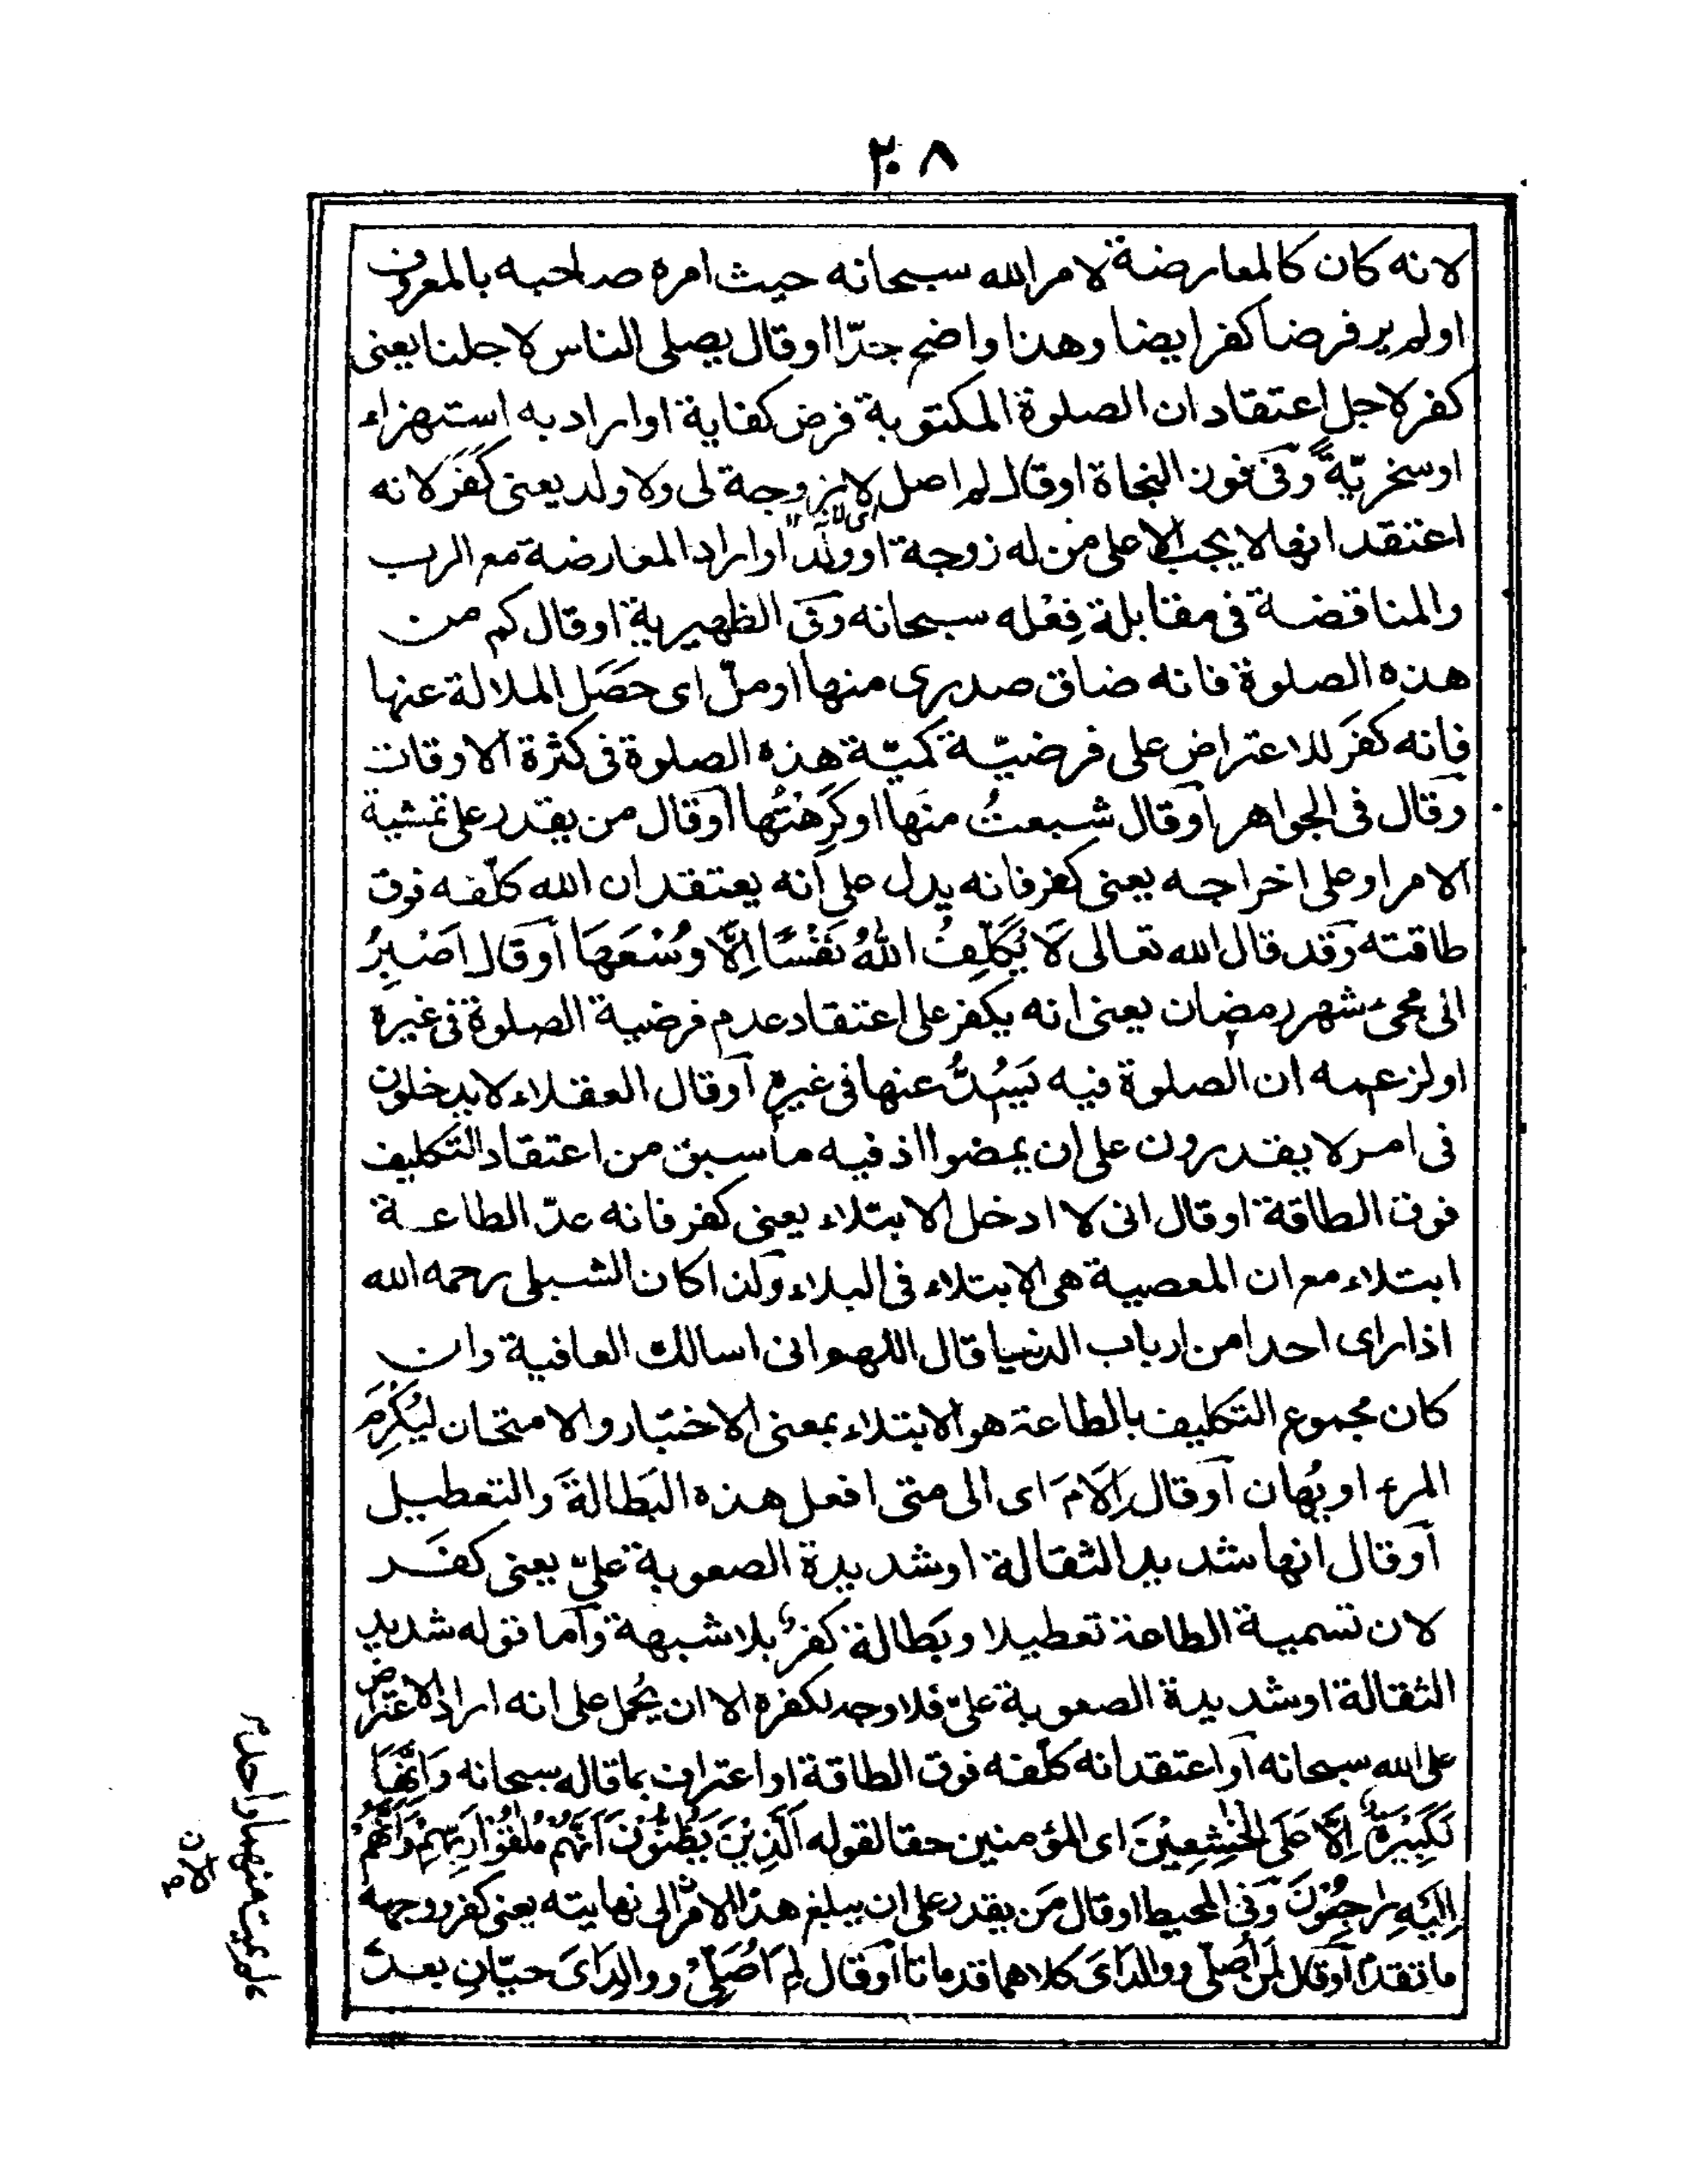 ٢٠٨
لانه كان كالمعارضة لامر الله سبحانه حيث امره صاحبه بالمعروف
اولم ير فرضا كفر ايضا وهذا واضح جدّا اوقال يصلى الناس لاجلنا يعنى
كفر لاجل اعتقاد ان الصلوة المكتوبة فرض كفاية اواراد به استهزاء
اوسخريّةً وفى فوز النجاة اوقال لم اصل لا زوجة لى ولا ولد يعنى كفر لانه
اعتقد انها لا يجب الا على من له زوجة اوولد اواراد المعارضة مع الرب
والمناقضة فى مقابلة فِعْله سبحانه وفى الظهيرية اوقال كم من
هذه الصلوة فانه ضاق صدرى منها اوملّ اى حَصَل الملالة عنها
فانه كفَر للاعتراض على فرضيّة كميّة هذه الصلوة فى كثرة الاوقات
وقال فى الجواهر اوقال شبعتُ منها اوكَرِهْتُها اوقال من يقدر على تمشية
الامر اوعلى اخراجه يعنى كفر فانه يدل على انه يعتقد ان الله كلّفه فوق
طاقته وقد قال الله تعالى لَا يُكَلِّفُ اللّٰهُ نَفْسًا اِلَّا وُسْعَهَا اوقال اَصْبِرُ
الى مجئ شهر رمضان يعنى انه يكفر على اعتقاد عدم فرضية الصلوة فى غيره
اولزعمه ان الصلوة فيه يَسُدُّ عنها فى غيره اوقال العقلاء لا يدخلون
فى امر لا يقدرون على ان يمضوا اذ فيه ما سبق من اعتقاد التكليف
فوق الطاقة اوقال انى لا ادخل الابتلاء يعنى كفر فانه عدّ الطاعة
ابتلاء مع ان المعصية هى الابتلاء فى البلاء ولذا كان الشبلى رحمه الله
اذا راى احدا من ارباب الدنيا قال اللهم انى اسالك العافية وان
كان مجموع التكليف بالطاعة هو الابتلاء بمعنى الاختبار والامتحان ليُكْرِمَ
المرء اويُهان اوقال اِلَامَ اى الى متى افعل هذه البَطالةَ والتعطيل
اوقال انها شديد الثقالة اوشديدة الصعوبة علىّ يعنى كفَر
لان تسمية الطاعة تعطيلا وبَطالة كفرٌ بلا شبهة واما قوله شديد
الثقالة اوشديدة الصعوبة علىّ فلا وجه لكفره الا ان يُحمل على انه اراد الاعتراض
على الله سبحانه او اعتقد انه كلّفه فوق الطاقة او اعتراف بما قاله سبحانه وَاِنَّهَا
لَكَبِيْرَةٌ اِلَّا عَلَى الْخٰشِعِيْنَ اى المؤمنين حقا لقوله اَلَّذِيْنَ يَظُنُّوْنَ اَنَّهُمْ مُلٰقُوْا رَبِّهِمْ وَاَنَّهُمْ
اِلَيْهِ رٰجِعُوْنَ وفى المحيط اوقال مَن يقدر على ان يبلغ هذا الامر الى نهايته يعنى كفر ووجهه
ما تقدم اوقال لمن اُصلّى ووالداىَ كلاهما قد ماتا اوقال لِمَ اُصَلِّىْ ووالداىَ حيّانِ بعدُ